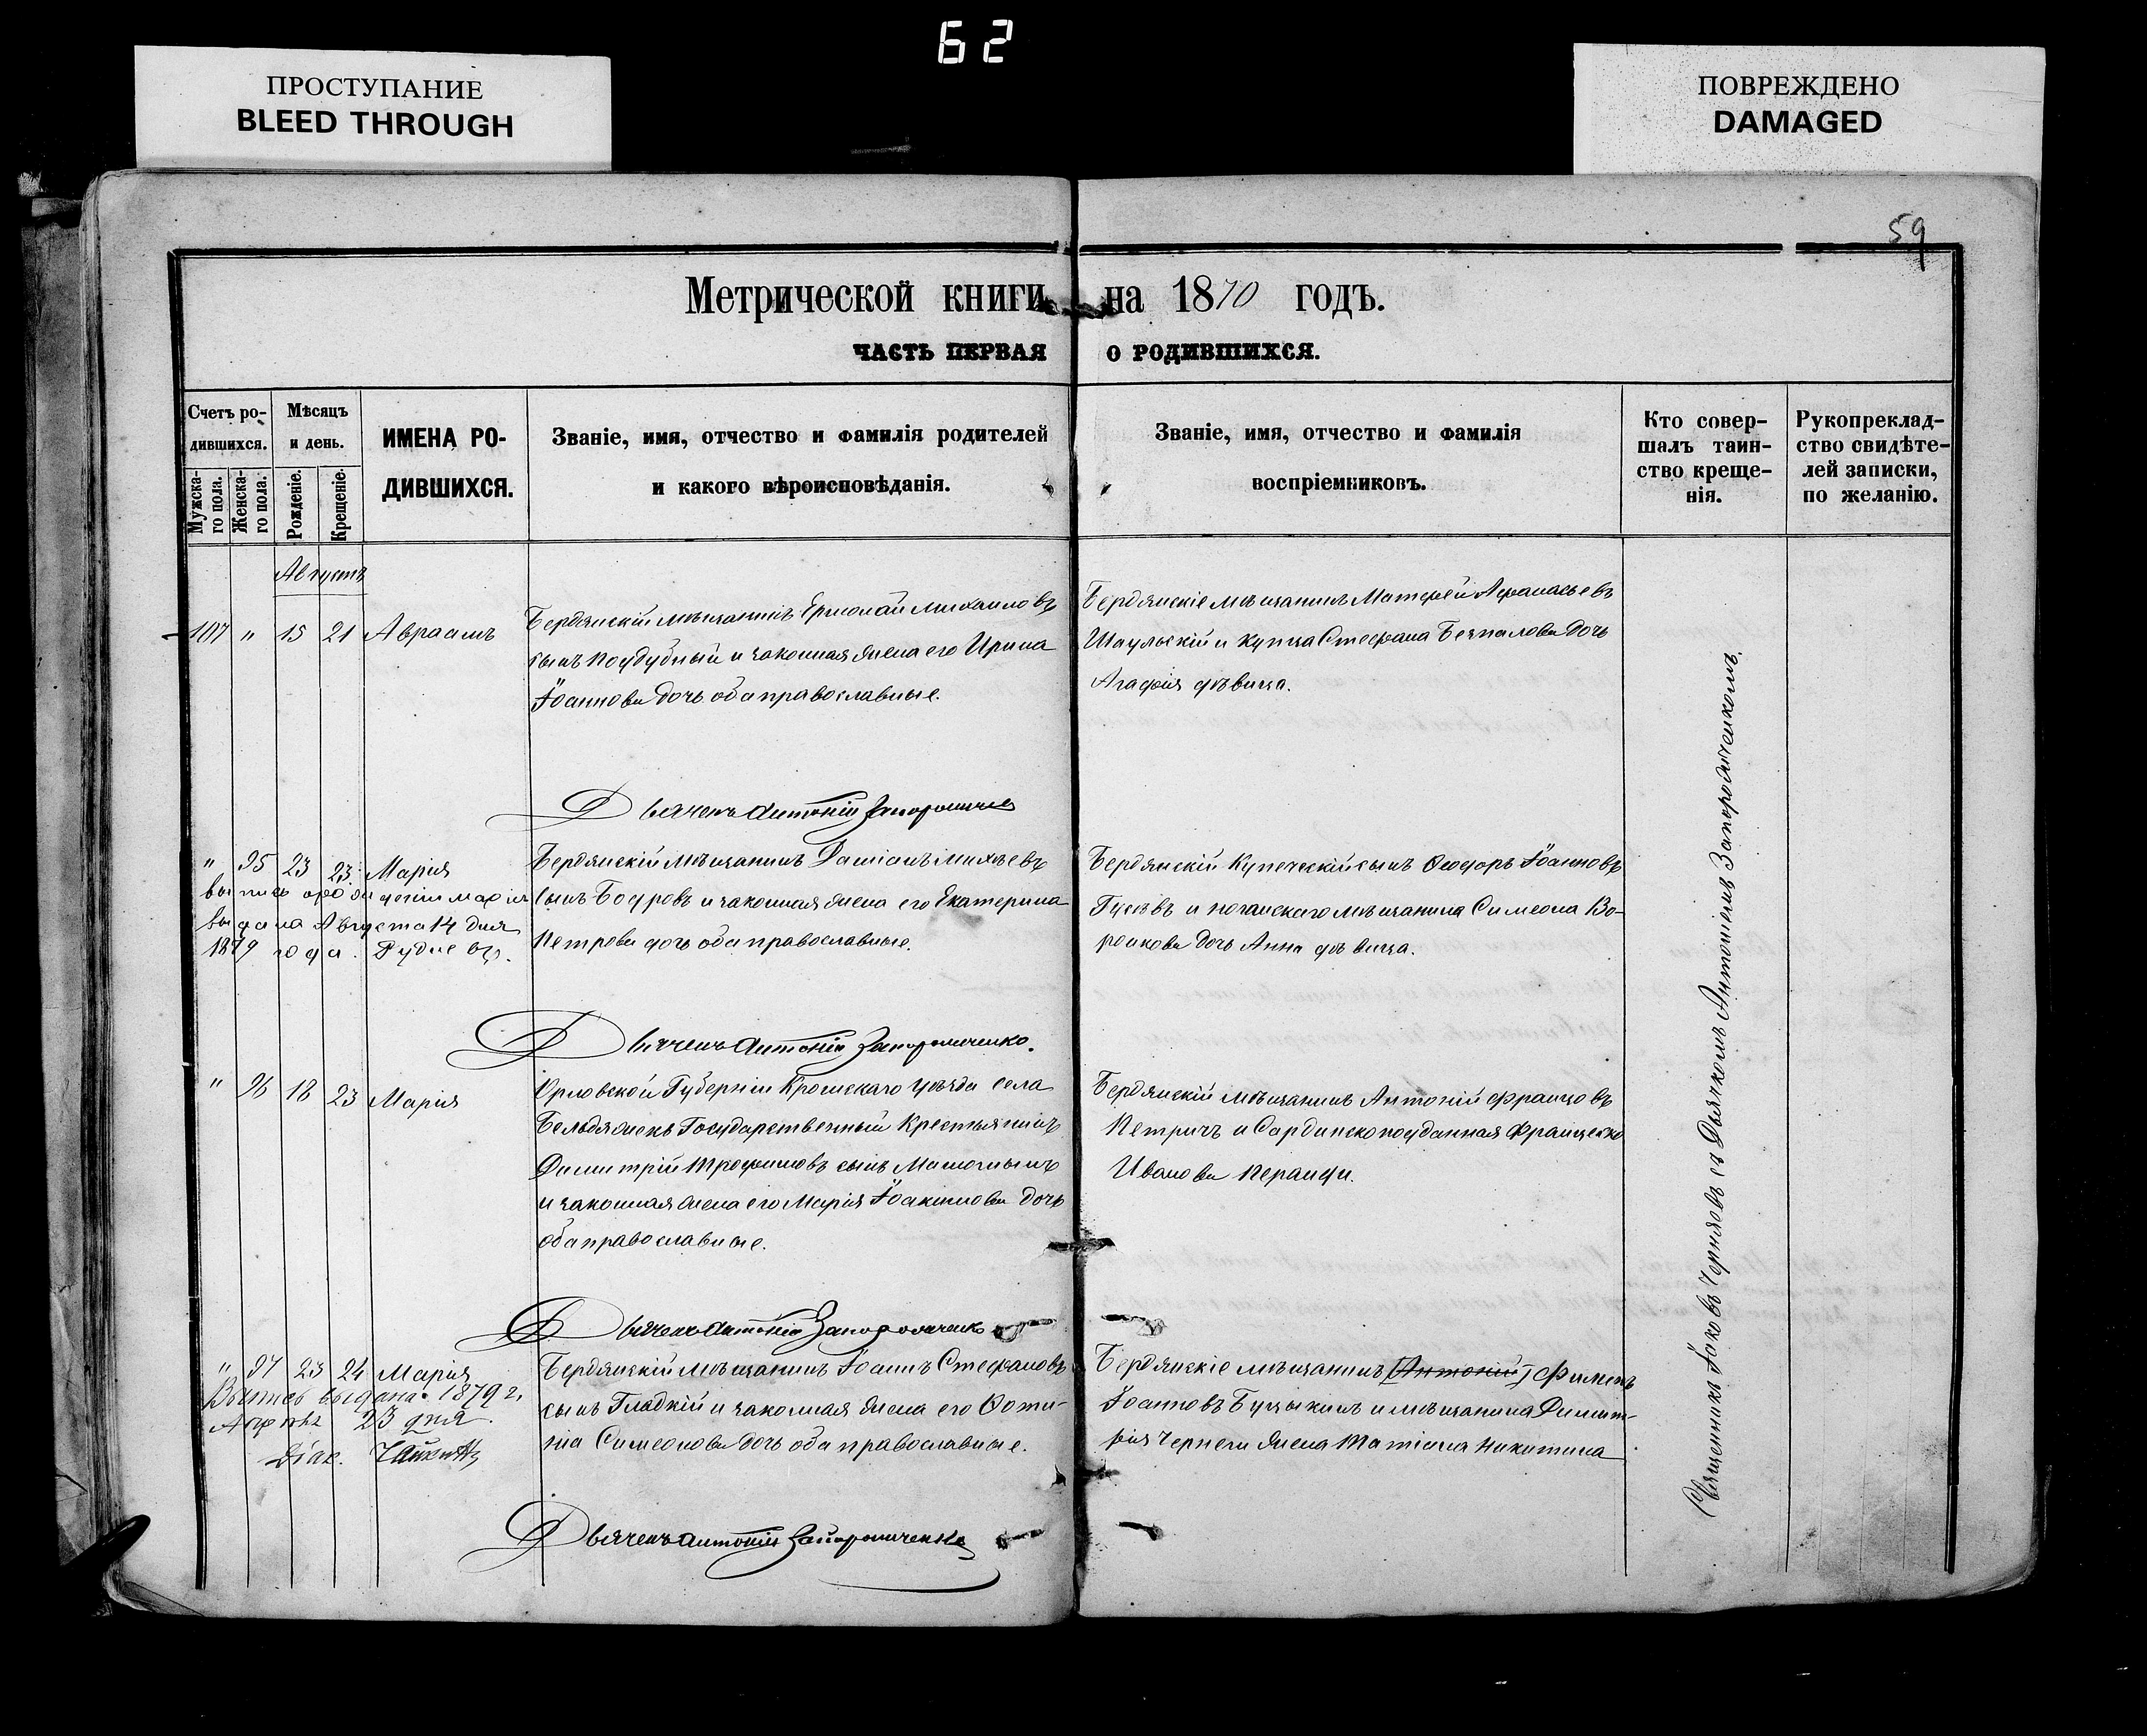 62
ПРОСТУПАНИЕ
BLEED THROUGH
ПОВРЕЖДЕНО
DAMAGED
59
Метрической книги на 1870 годъ.
ЧАСТЬ ПЕРВАЯ О РОДИВШИХСЯ.
Счетъ ро-
дившихся.
Мужска-
го пола.
Женска-
го пола.
Мѣсяцъ
и день.
Рожденіе.
Крещеніе.
ИМЕНА РО-
ДИВШИХСЯ.
Званіе, имя, отчество и фамилія родителей
и какого вѣроисповѣданія.
Званіе, имя, отчество и фамилія
воспріемниковъ.
Кто совер-
шалъ таин-
ство креще-
нія.
Рукоприклад-
ство свидѣте-
лей записки,
по желанію.
Августъ
107 " 15 21 Авраамъ
Бердянскій мѣщанинъ Ермолай Михаиловъ
сынъ Поддубный и законная жена его Ирина
Іоаннова дочь оба православные.
Бердянскіе мѣщанинъ Матфей Афанасьевъ
Шаульскій и купца Стефана Безпалова дочь
Агафія дѣвица.
Дьячекъ Антоній Запорожченко
" 95 23 23 Марія
выпись о рожденіи Маріи
выдана Августа 14 дня
1879 года.
Бердянскій мѣщанинъ Даміанъ Михѣевъ
сынъ Бодровъ и законная жена его Екатерина
Петрова дочь оба православные.
Бердянскій купеческій сынъ Ѳеодоръ Іоанновъ
Гусевъ и ногайскаго мѣщанина Симеона Во-
ронкова дочь Анна дѣвица.
Дьячекъ Антоній Запорожченко.
" 96 18 23 Марія
Орловской Губерніи Кромскаго уѣзда села
Бельдяжекъ Государственный Крестьянинъ
Димитрій Трофимовъ сынъ
и законная жена его Марія Іоакимова дочь
оба православные.
Бердянскій мѣщанинъ Антоній Францовъ
Петричъ и Сардинскоподданная Франческо
Иванова Леранди.
Дьячекъ Антоній Запорожченко
" 97 23 24 Марія
Выпись выдана 1879 г.
Апрѣля 23 дня.
Діак.
Бердянскій мѣщанинъ Іоаннъ Стефановъ
сынъ Гладкій и законная жена его Фоти-
нія Симеонова дочь оба православные.
Бердянскіе мѣщанинъ [Антоній] Филиппъ
Іоанновъ Бузыкинъ и мѣщанина Димит-
рія Чернеги жена Татіана Никитина
Дьячекъ Антоній Запорожченко
Священникъ Іаковъ Черняевъ съ Дьячкомъ Антоніемъ Запорожченкомъ.